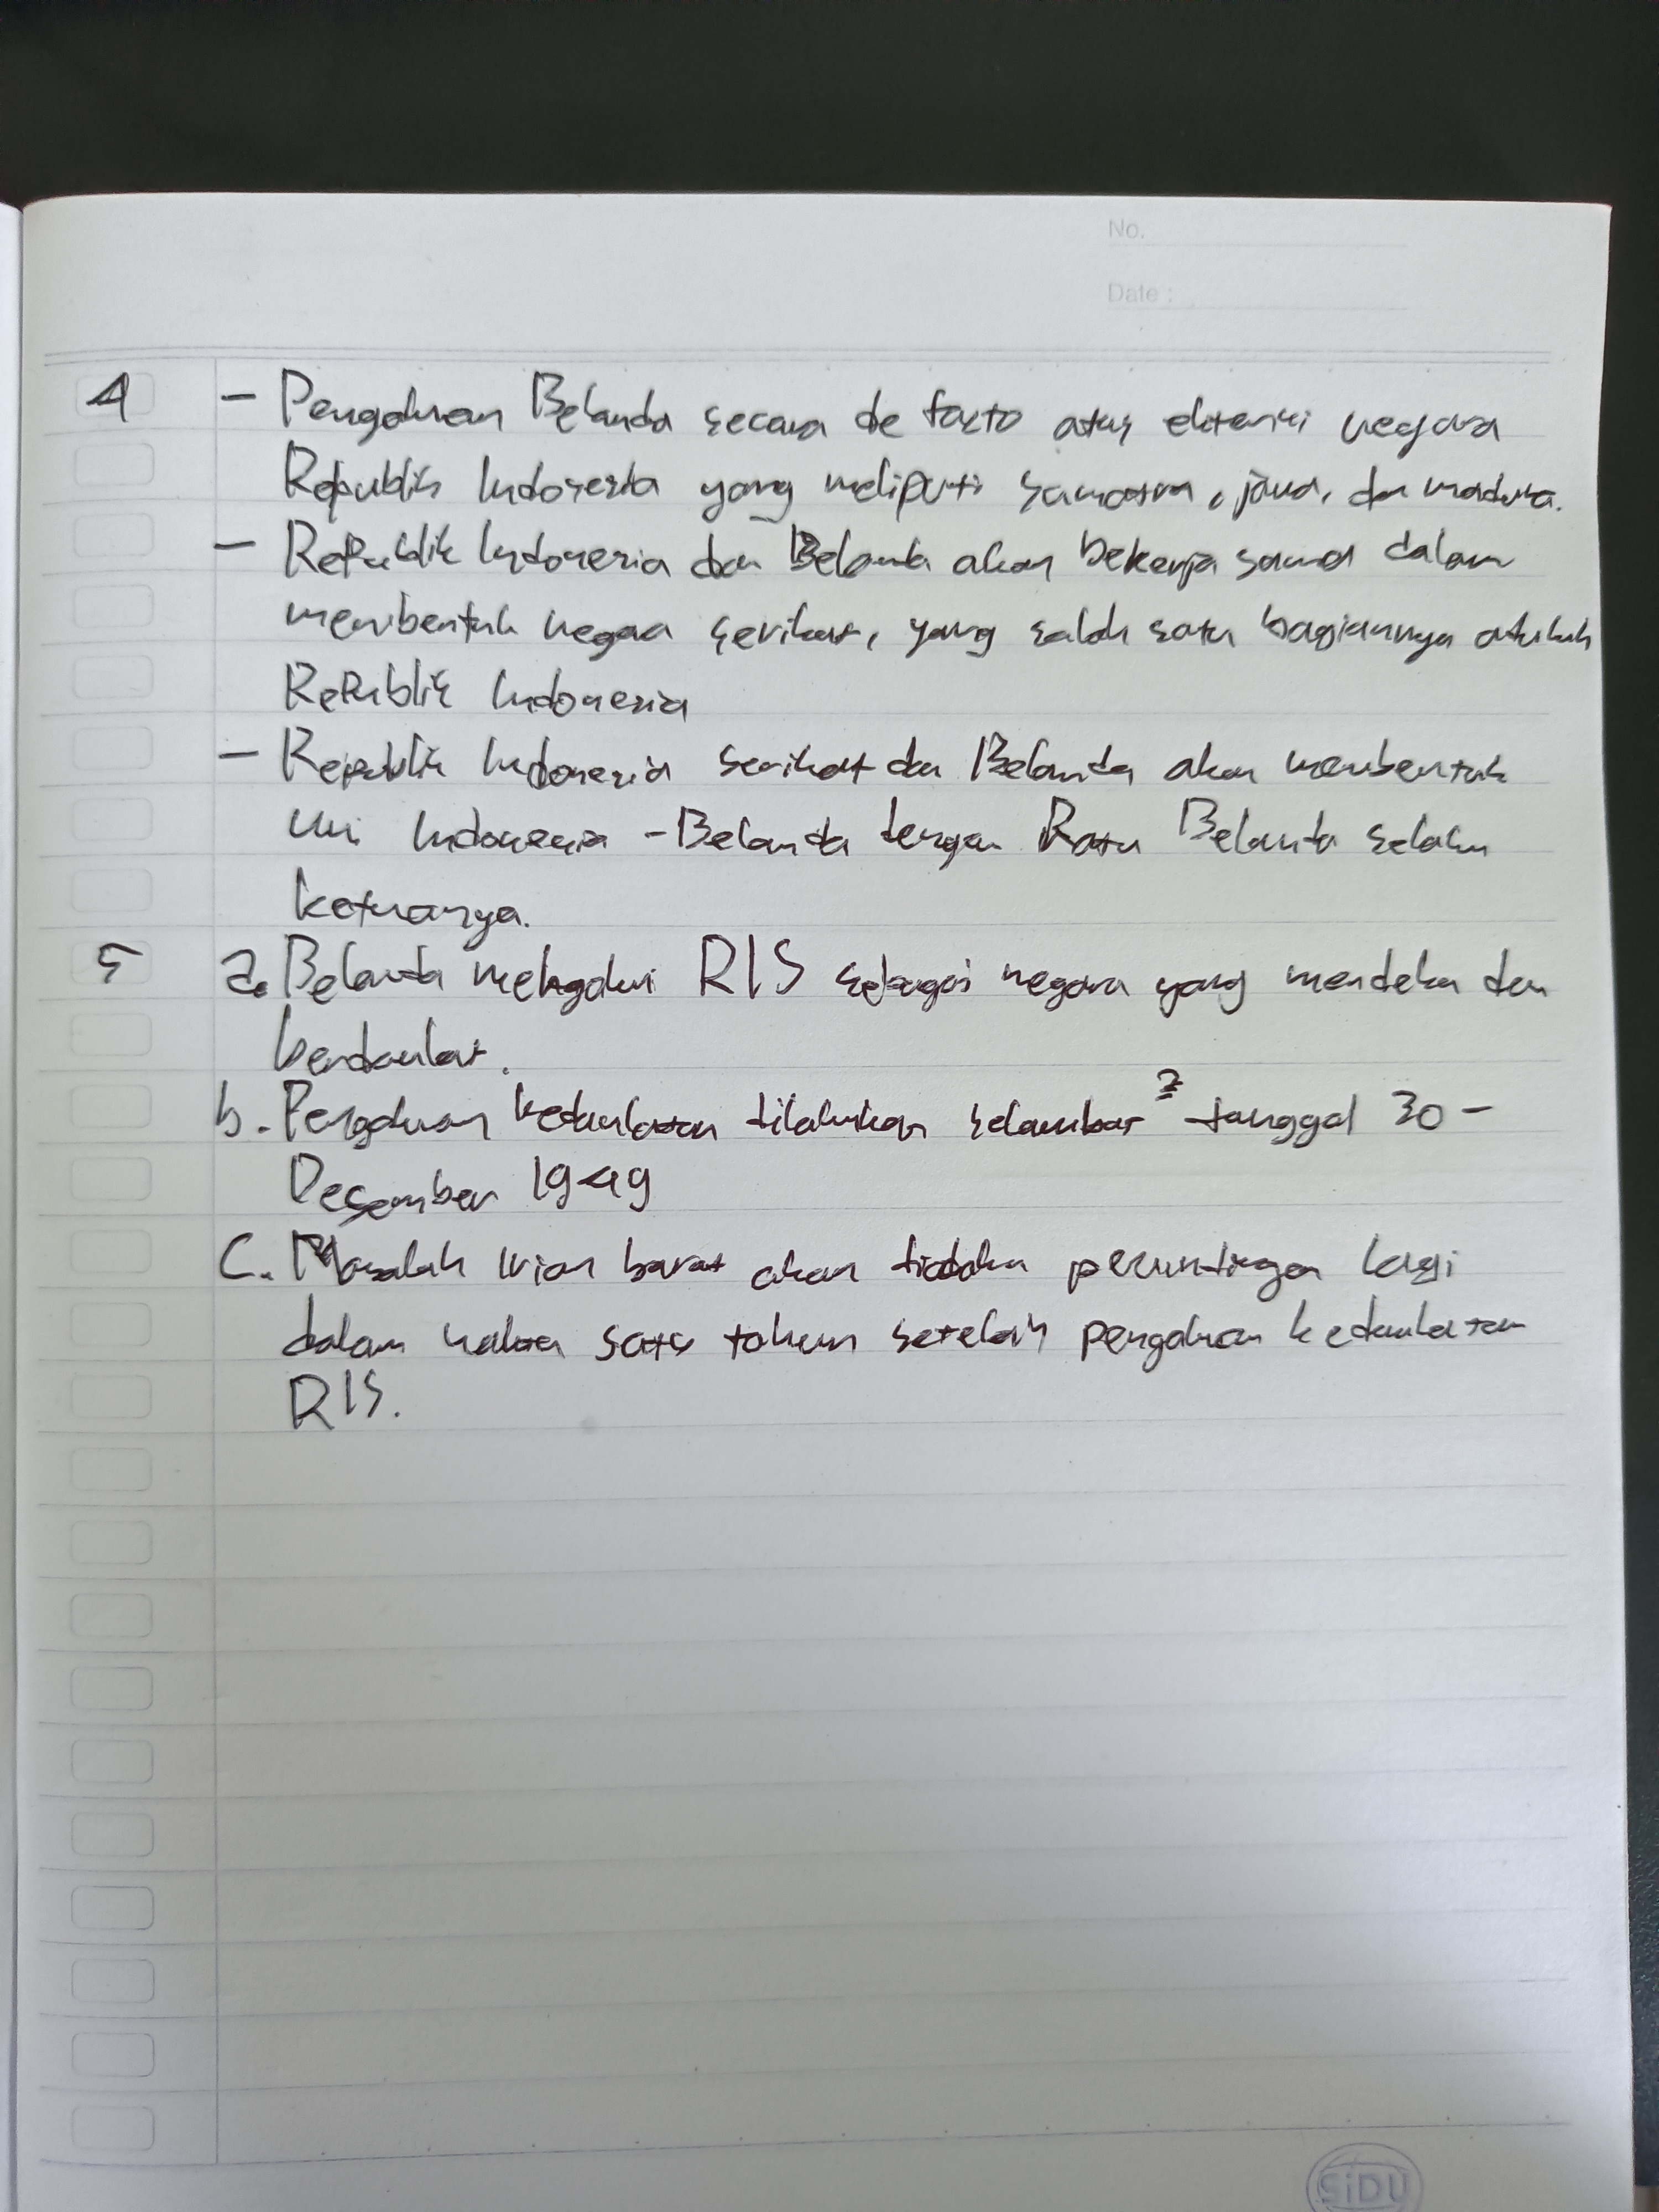 No.
Date :
4 - Pengakuan Belanda secara de facto atas eksistensi negara
Republik Indonesia yang meliputi sumatra, jawa, dan madura.
- Republik Indonesia dan Belanda akan bekerja sama dalam
membentuk negara serikat, yang salah satu bagiannya adalah
Republik Indonesia
- Republik Indonesia serikat dan Belanda akan membentuk
Uni Indonesia - Belanda dengan Ratu Belanda selaku
ketuanya.
5 a. Belanda mengakui RIS sebagai negara yang merdeka dan
berdaulat.
b. Pengakuan kedaulatan dilakukan selambat² tanggal 30 -
Desember 1949
c. Masalah irian barat akan diadakan perundingan lagi
dalam waktu satu tahun setelah pengakuan kedaulatan
RIS.
SiDU